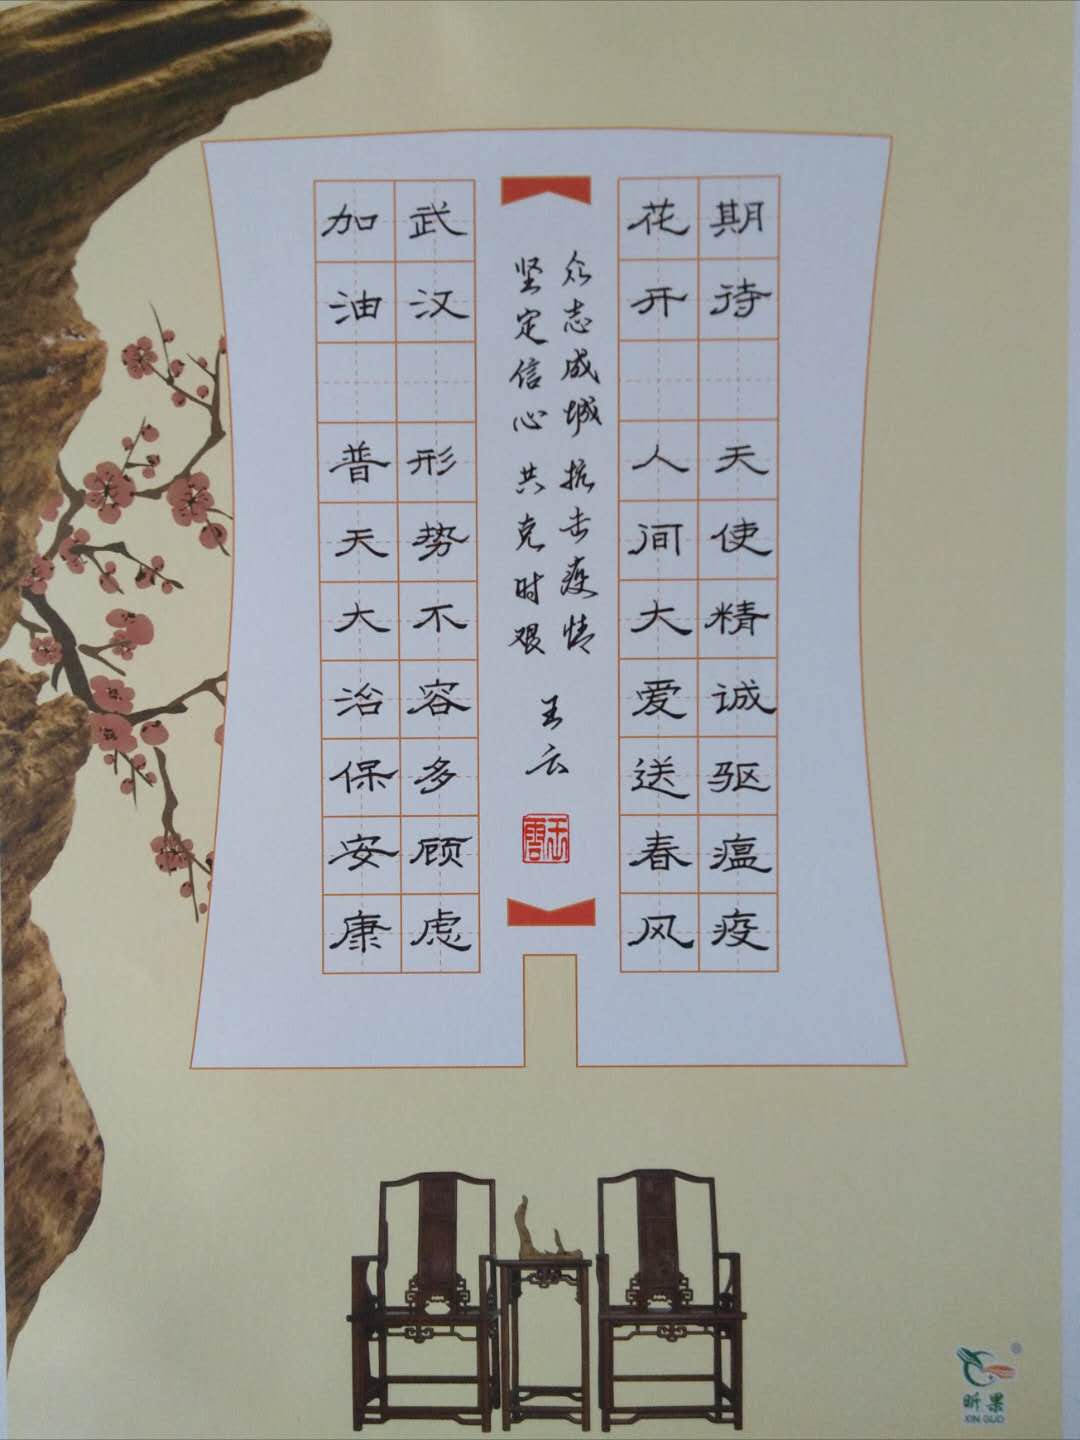 期待 天使精诚驱瘟疫
花开 人间大爱送春风
众志成城 抗击疫情
坚定信心 共克时艰
王云
武汉 形势不容多顾虑
加油 普天大治保安康
昕果
XIN GUO